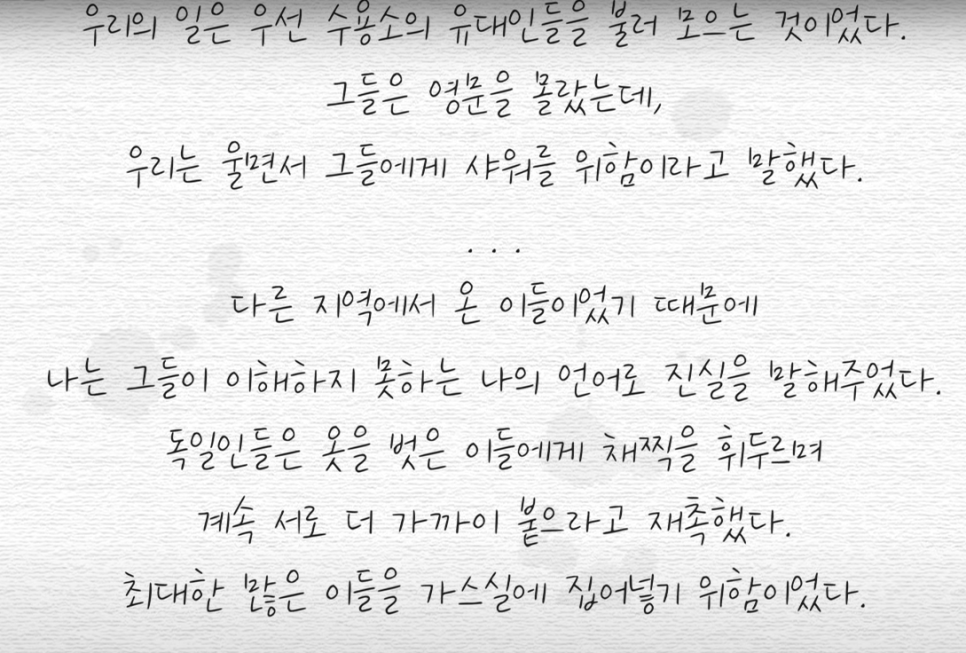 우리의 일은 우선 수용소의 유대인들을 불러 모으는 것이었다.
그들은 영문을 몰랐는데,
우리는 울면서 그들에게 샤워를 위함이라고 말했다.
...
다른 지역에서 온 이들이었기 때문에
나는 그들이 이해하지 못하는 나의 언어로 진실을 말해주었다.
독일인들은 옷을 벗은 이들에게 채찍을 휘두르며
계속 서로 더 가까이 붙으라고 재촉했다.
최대한 많은 이들을 가스실에 집어넣기 위함이었다.